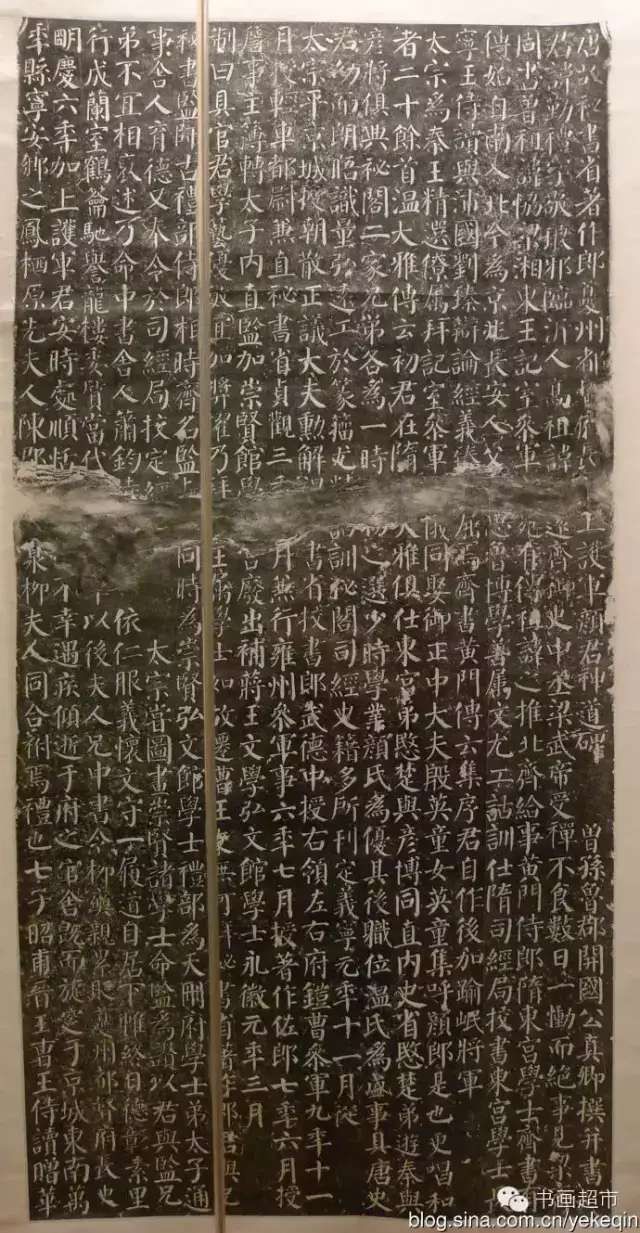 唐故祕書省著作郎夔州都督府長 上護軍顏君神道碑 曾孫魯郡開國公真卿撰并書
君諱勤禮字敬琅邪臨沂人高祖諱 遠齊御史中丞梁武帝受禪不食數日一慟而絕事見梁
周書曾祖諱協梁湘東王記室參軍 苑有傳祖諱之推北齊給事黃門侍郎隋東宮學士齊書有
傳始自南入北今為京兆長安人父 思魯博學善屬文尤工詁訓仕隋司經局校書東宮學士長
寧王侍讀與沛國劉臻辯論經義臻 屈焉齊書黃門傳云集序君自作後加踰岷將軍
太宗為秦王精選僚屬拜記室參軍 儀同娶御正中大夫殷英童女英童集呼顏郎是也更唱和
者二十餘首溫大雅傳云初君在隋 大雅俱仕東宮弟愍楚與彥博同直內史省愍楚弟遊秦與
彥將俱典祕閣二家兄弟各為一時 物之選少時學業顏氏為優其後職位溫氏為盛事具唐史
君幼而朗晤識量弘遠工於篆籀尤精 訓祕閣司經史籍多所刊定義寧元年十一月從
太宗平京城授朝散正議大夫勳解 書省校書郎武德中授右領左右府鎧曹參軍九年十一
月授輕車都尉兼直祕書省貞觀三年 月兼行雍州參軍事六年七月授著作佐郎七年六月授
詹事主簿轉太子內直監加崇賢館學 宮廢出補蔣王文學弘文館學士永徽元年三月
制曰具官君學藝優敏宜加獎擢乃拜 王屬學士如故遷曹王友無何拜祕書省著作郎君與兄
祕書監師古禮部侍郎相時齊名監與 同時為崇賢弘文館學士禮部為天冊府學士弟太子通
事舍人育德又奉令於司經局校定經 太宗嘗圖畫崇賢諸學士命監為讚以君與監兄
弟不宜相褒述乃命中書舍人蕭鈞特 依仁服義懷文守一履道自居下帷終日德彰素里
行成蘭室鶴籥馳譽龍樓委質當代 年以後夫人兄中書令柳奭親累貶夔州都督府長史
明慶六年加上護軍君安時處順恬 不幸遇疾傾逝于府之官舍既而旋窆于京城東南萬
年縣寧安鄉之鳳栖原先夫人陳郡 泉柳夫人同合祔焉禮也七子昭甫晉王曹王侍讀贈華
书画超市
blog.sina.com.cn/yekeqin